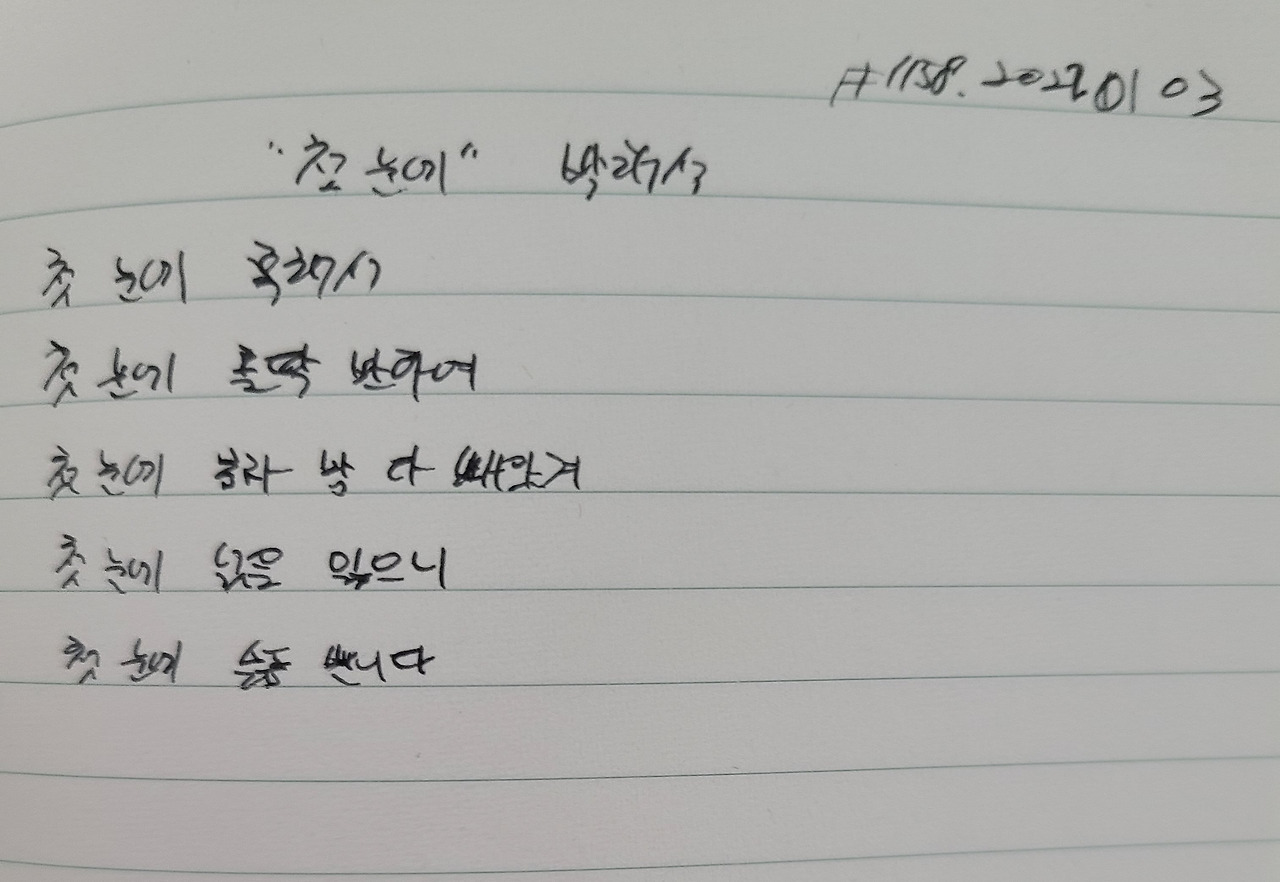 #1158. 2022 01 03
"첫 눈에" 박래식
첫 눈에 혹해서
첫 눈에 홀딱 반하여
첫 눈에 다 빼앗겨
첫 눈에 넋을 잃으니
첫 눈에 숨통